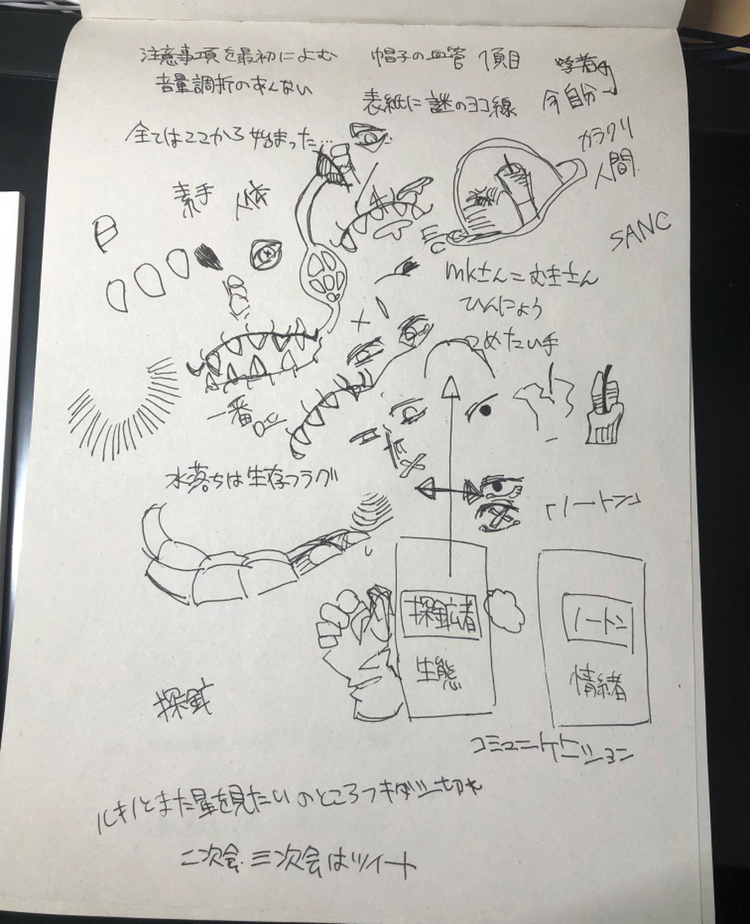 注意事項を最初によむ
音量調折のあんない
帽子の血管 1項目
表紙に謎のヨコ線
学者
今自分
全てはここから始まった…
カラクリ
人間
素手 人体
SANC
mkさん=むきさん
ひんにょう
つめたい手
一番
水落ちは生存フラグ
ノートン
探鉱者
生態
ノートン
情緒
探鉱
コミュニケーション
ルキノとまた星を見たい のところフキダシ切れ
二次会.三次会はツイート